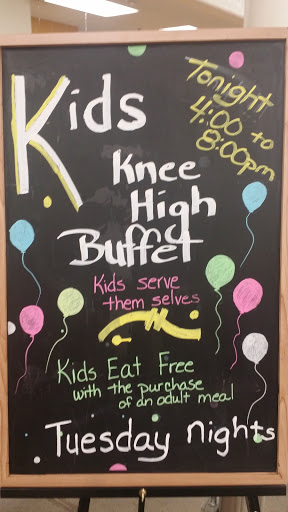 Kids
Tonight
4:00 to
8:00pm
Knee
High
Buffet
Kids serve
them selves
Kids Eat Free
with the purchase
of an adult meal
Tuesday Nights